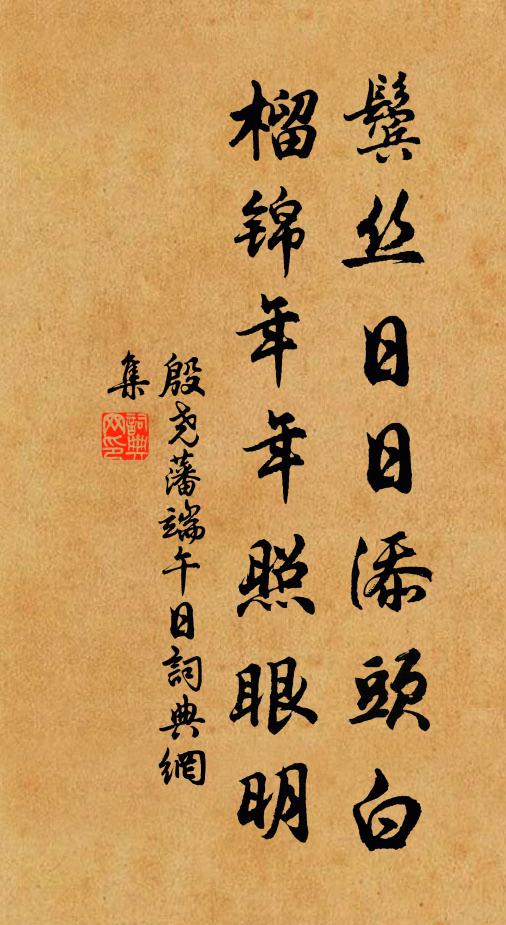 鬓丝日日添頭白
榴锦年年照眼明
殷尧藩端午日詞典網
集
詞典
网印